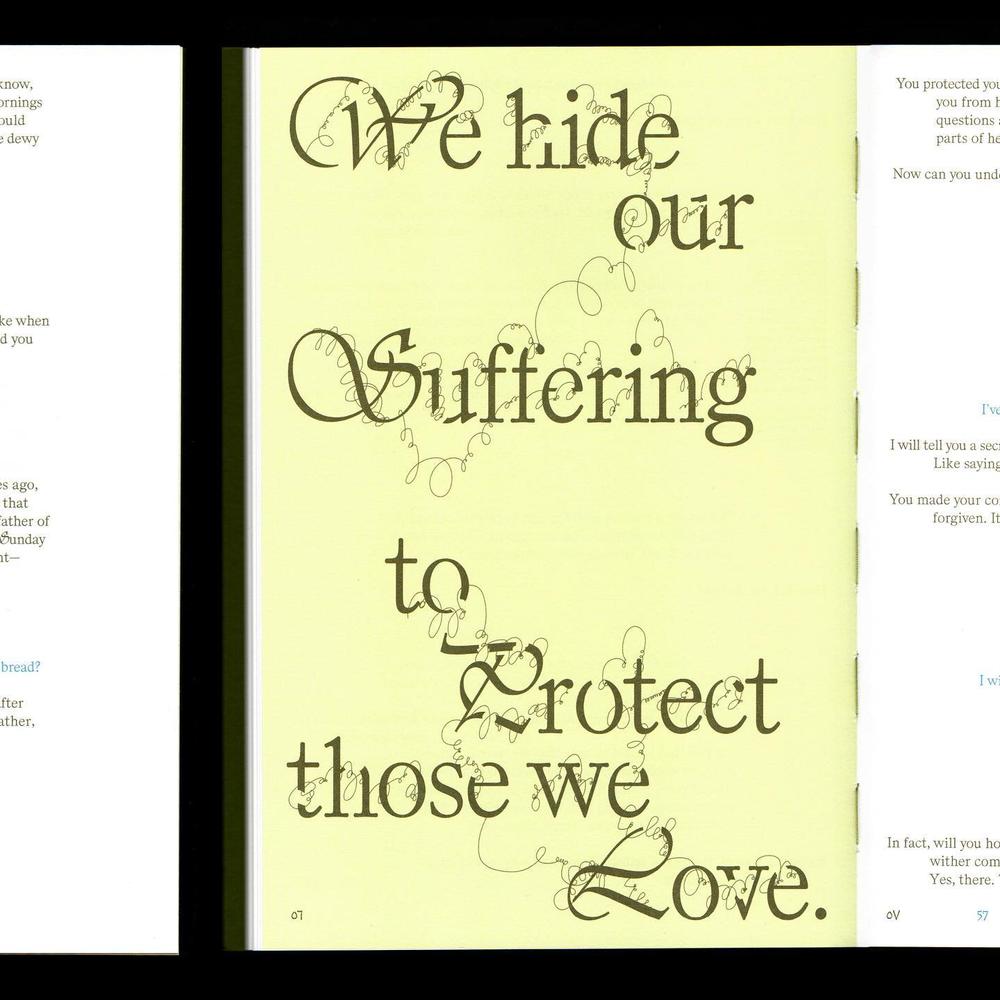 know,
ornings
ould
e dewy
ke when
d you
es ago,
that
father of
Sunday
nt—
bread?
fter
ather,
We hide
our
Suffering
to
Protect
those we
Love.
07
You protected you
you from h
questions a
parts of he
Now can you unde
I've
I will tell you a secr
Like saying
You made your con
forgiven. It
I wi
In fact, will you ho
wither com
Yes, there. T
oV
57